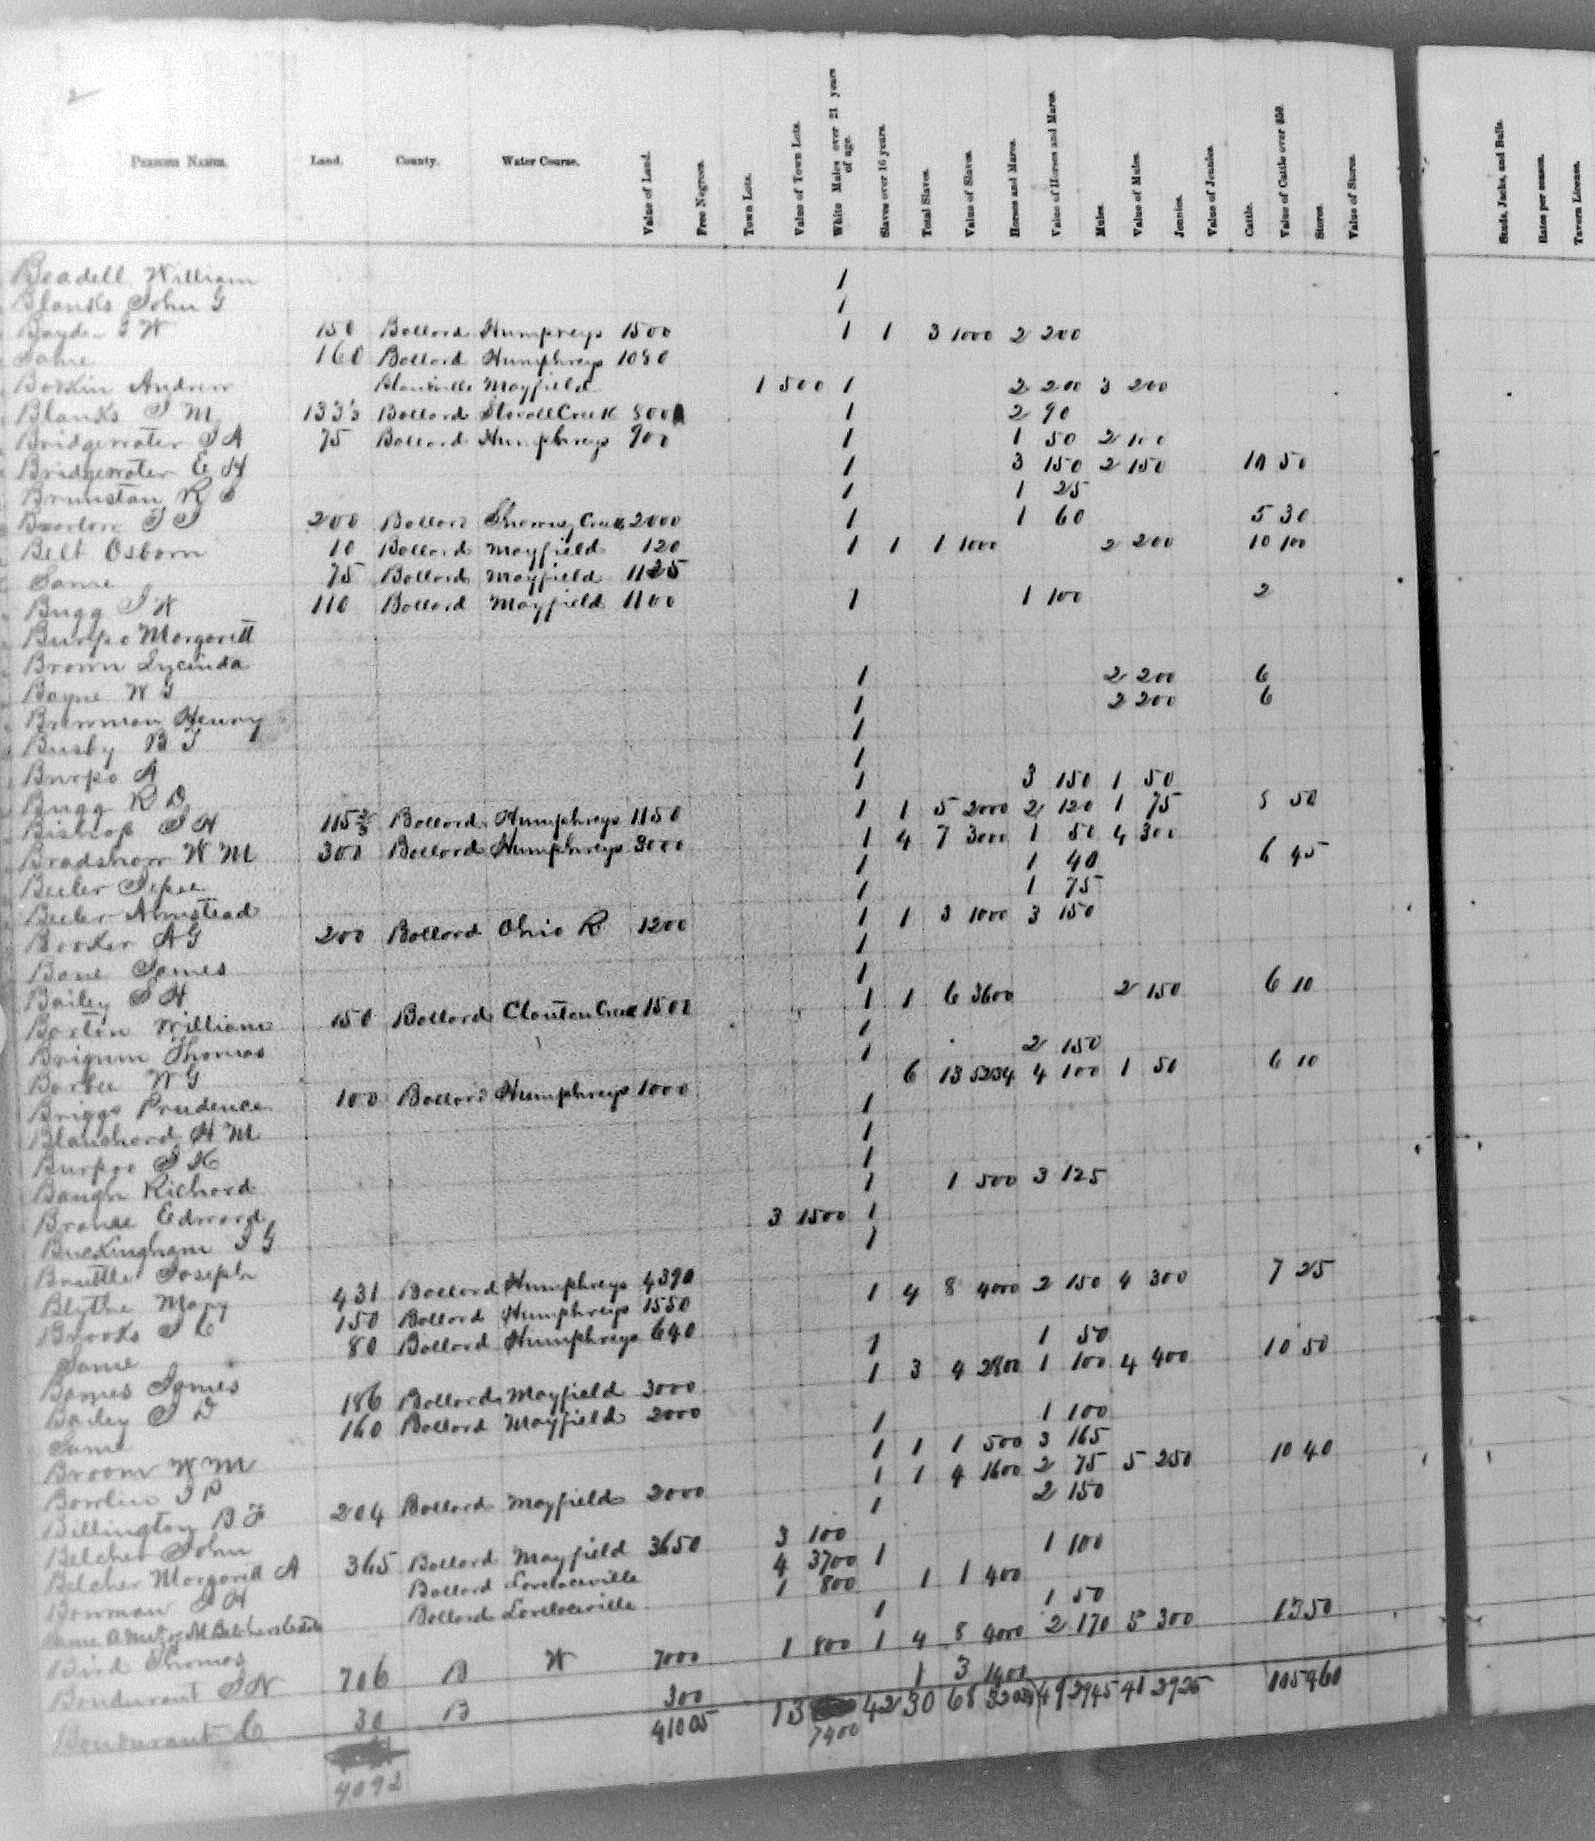 2
Persons Names. Land. County. Water Course. Value of Land. Free Negroes. Town Lots. Value of Town Lots. White Males over 21 years of age. Slaves over 16 years. Total Slaves. Value of Slaves. Horses and Mares. Value of Horses and Mares. Mules. Value of Mules. Jennies. Value of Jennies. Cattle. Value of Cattle over $50. Stores. Value of Stores. Studs, Jacks, and Bulls. Rates per season. Tavern License.
Beadell William 1
Blanks John G 1
Boyd W 150 Ballard Humphreys 1500 1 1 3 1000 2 200
Same 160 Ballard Humphreys 1080
Andrew Blanville Mayfield 1 500 1 2 200 3 200
Blanks J M 133 1/3 Ballard Stovall Creek 800 1 2 90
Bridgewater J A 75 Ballard Humphreys 900 1 1 50 2 100
Bridgewater E H 1 3 150 2 150 10 50
R 1 1 25
200 Ballard Creek 2000 1 1 60 5 30
Belt Osborn 10 Ballard Mayfield 120 1 1 1 1000 2 200 10 100
Same 75 Ballard Mayfield 1125
Bugg J W 110 Ballard Mayfield 1100 1 1 100 2
Burpo Margarett
Brown Lucinda 1 2 200 6
Bayne W G 1 2 200 6
Henry 1
Busby B J 1
Burpo A 1 3 150 1 50
Bugg R D 1 1 5 2000 2 120 1 75 5 50
Bishop J H 115 2/3 Ballard Humphreys 1150 1 4 7 3000 1 50 4 300
Bradshaw W M 300 Ballard Humphreys 3000 1 1 40 6 45
Beeler Jesse 1 1 75
Beeler Armstead 1 1 3 1000 3 150
Booker A G 200 Ballard Ohio R 1200 1
Bone James 1
Bailey J H 1 1 6 3600 2 150 6 10
William 150 Ballard Clanton Creek 1500 1
Thomas 1 2 150
Barbee W G 6 13 5234 4 100 1 50 6 10
Briggs Prudence 100 Ballard Humphreys 1000 1
Blanchard H M 1
Burpoo J K 1
Baugh Richard 1 1 500 3 125
Edward 3 1500 1
Buckingham J G 1
Joseph
Blythe Mary 431 Ballard Humphreys 4390 1 4 8 4000 2 150 4 300 7 25
Brooks J C 150 Ballard Humphreys 1550
Same 80 Ballard Humphreys 640 1 1 50
James 1 3 4 2800 1 100 4 400 10 50
Bailey J D 186 Ballard Mayfield 3000
Same 160 Ballard Mayfield 2000 1 1 100
Broom W M 1 1 1 500 3 165
Bowlin J P 1 1 4 1600 2 75 5 250 10 40
Billington B F 204 Ballard Mayfield 2000 1 2 150
Belcher John 3 100
Belcher Margarett A 365 Ballard Mayfield 3650 4 3700 1 1 100
Bowman J H Ballard Lovelaceville 1 800 1 1 400
Same Ballard Lovelaceville 1 1 50
Bird Thomas 1 800 1 4 8 4000 2 170 5 300 15 50
Bondurant J N 706 B W 7000 1 3 1400
Bondurant C 30 B 300
4092 41005 13 7400 42 30 68 49 2945 41 2925 105 460